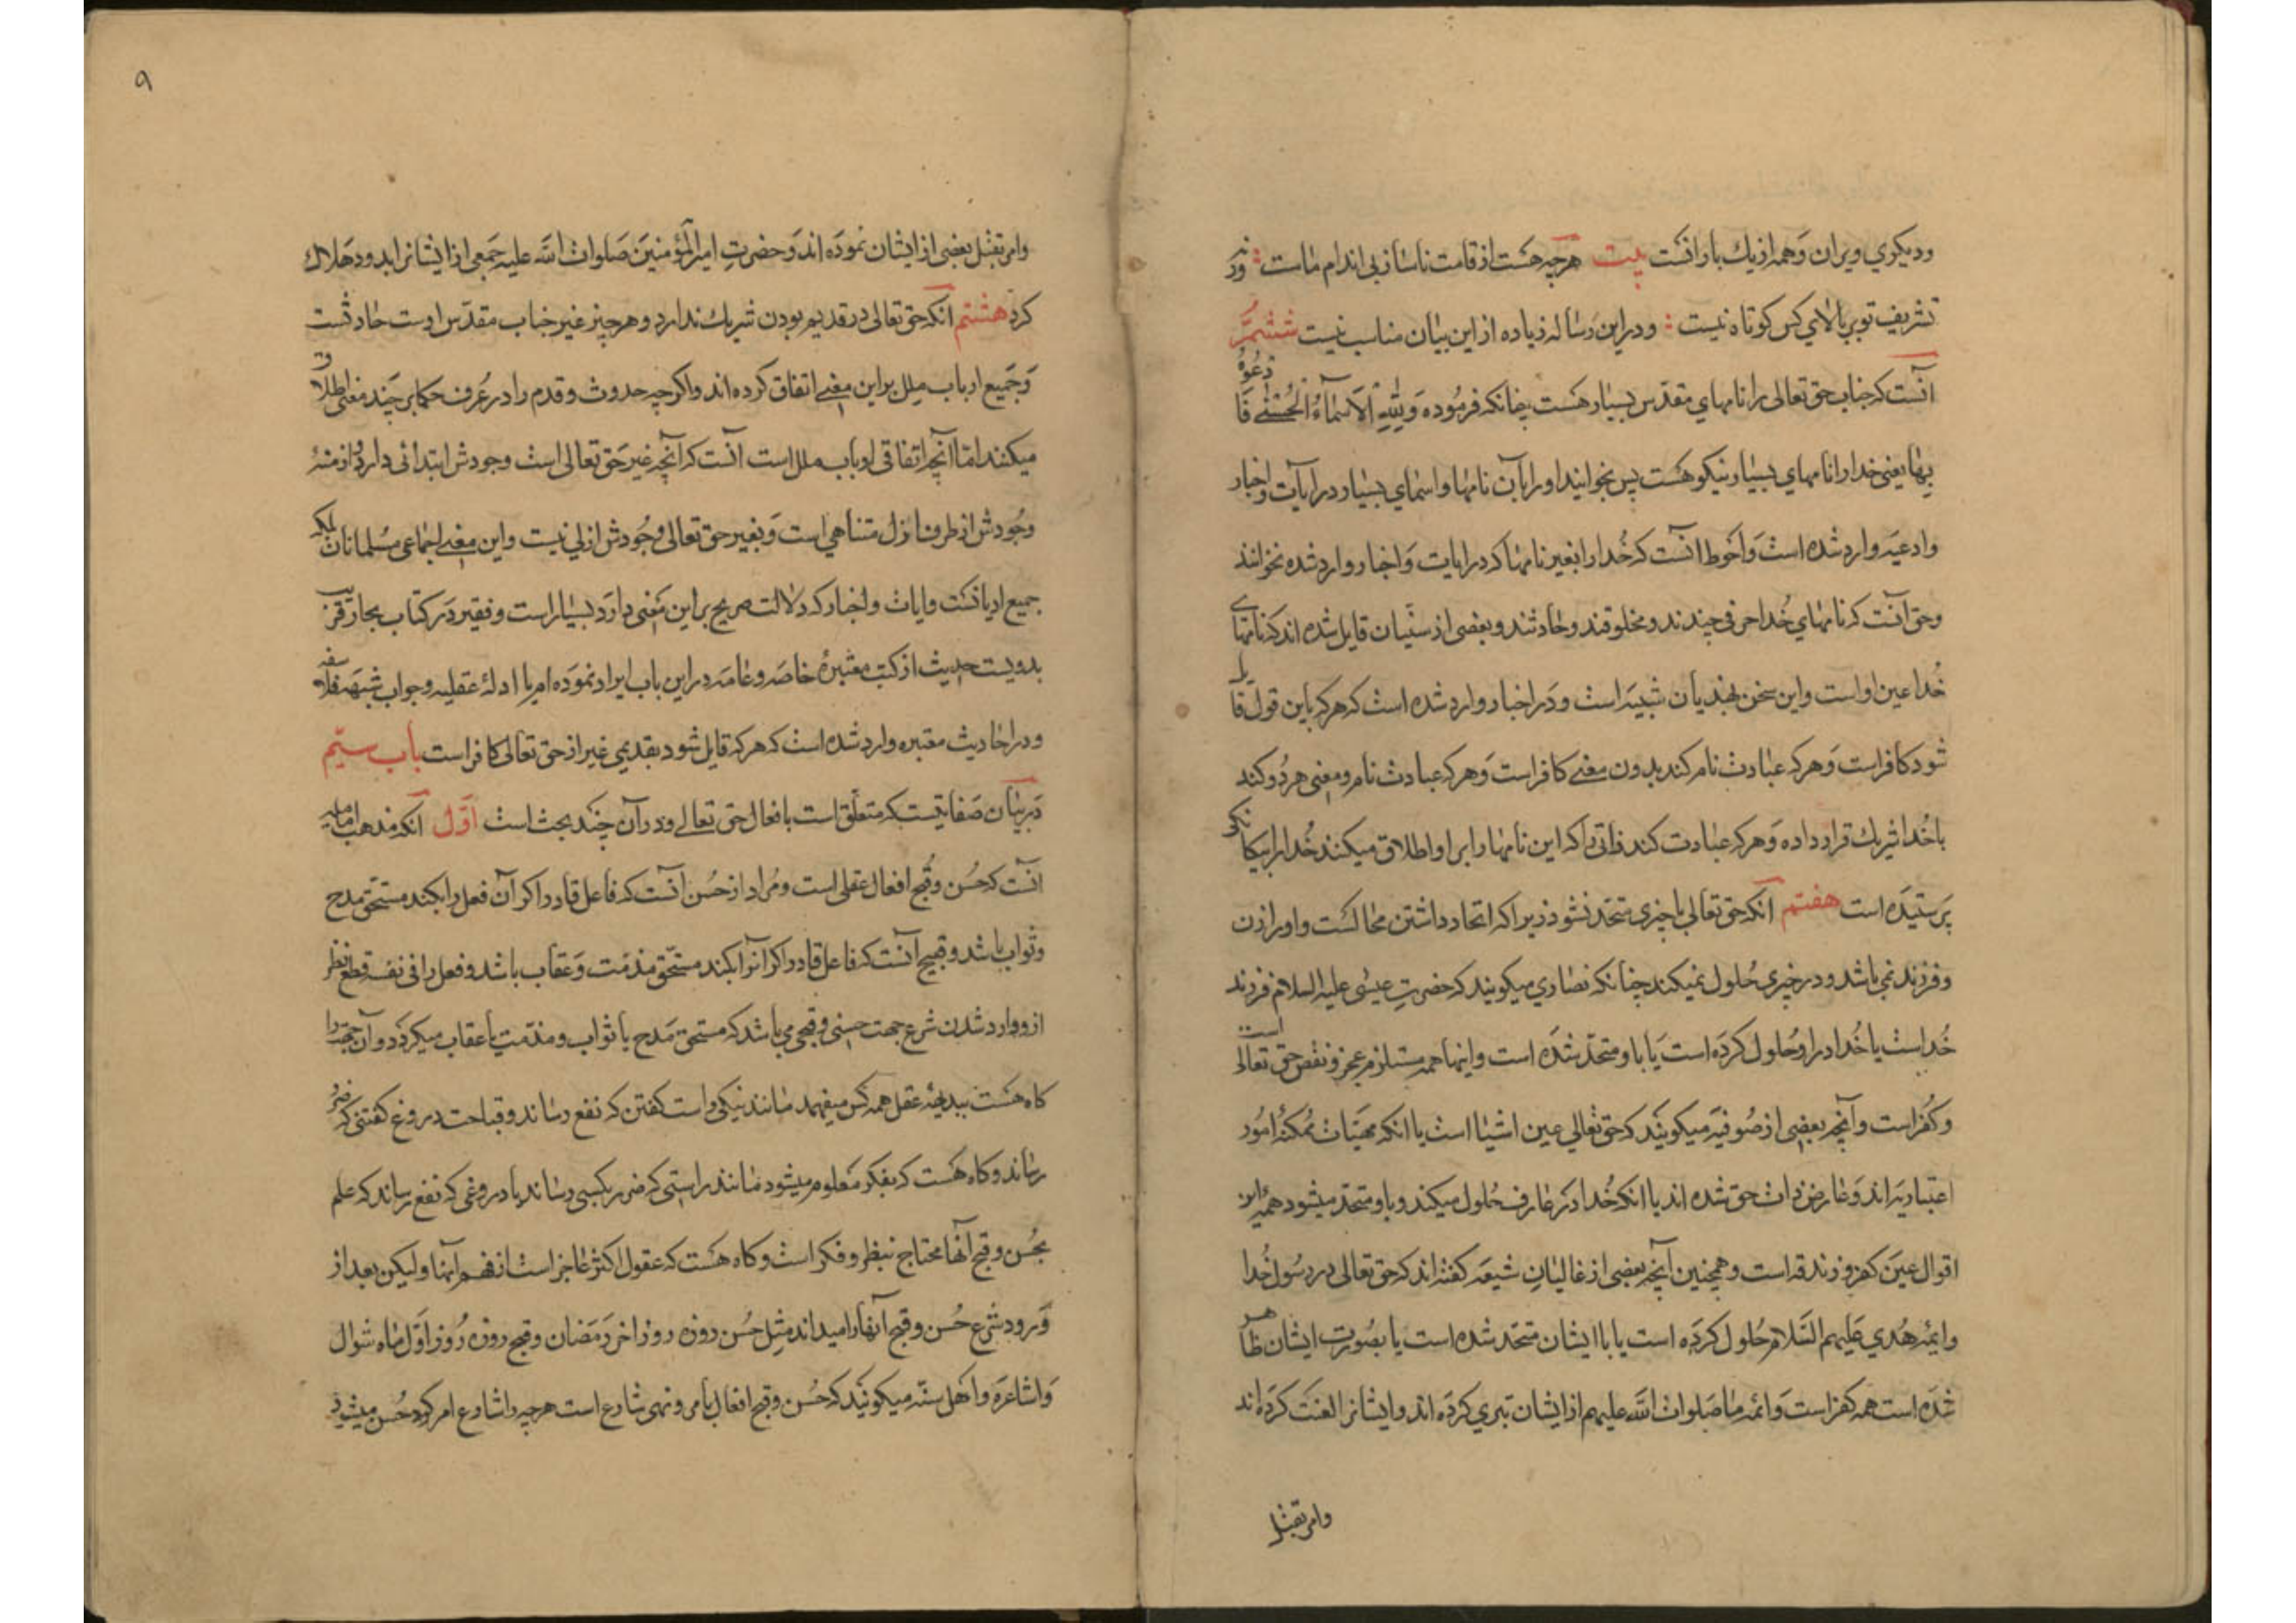 ودیکری ویران وهمه از یك بارانست بیت هرچه هست از قامت ناساز بی اندام ماست ورنه
تشریف تو بر بالای کس کوتاه نیست ودراین رساله زیاده از این بیان مناسب نیست ششم
آنست که جناب حق تعالی را نامهای مقدس بسیار هست چنانکه فرموده وَلِلّٰهِ الْاَسْمٰاءُ الْحُسْنٰی فَادْعُوهُ
بِهٰا یعنی خدا را نامهای بسیار نیکو هست پس بخوانید اورا بآن نامها واسمای بسیار در آیات واخبار
وادعیه وارد شده است واحوط آنست که خدا را بغیر نامها که در آیات واخبار وارد شده نخوانند
وحق آنست که نامهای خدا حرفی چندند ومخلوقند وحادثند وبعضی از سنیان قایل شده اند که نامهای
خدا عین او است واین سخن بهذیان شبیه است ودر اخبار وارد شده است که هر که باین قول قایل
شود کافر است وهر که عبادت نام کند بدون معنی کافر است وهر که عبادت نام ومعنی هر دو کند
با خدا شریك قرار داده وهر که عبادت کند ذاتی را که این نامها را بر او اطلاق میکنند خدا را بیکانکی
پرستیده است هفتم آنکه حق تعالی با چیزی متحد نشود زیرا که اتحاد داشتن محالست واو را زن
وفرزند نمی باشد ودر چیزی حلول نمیکند چنانکه نصاری میکویند که حضرت عیسی علیه السلام فرزند
خداست یا خدا در او حلول کرده است یا با او متحد شده است واینها همه مستلزم عجز ونقص حق تعالی است
وکفر است وآنچه بعضی از صوفیه میکویند که حق تعالی عین اشیا است یا انکه مهیّات ممکنه امور
اعتباریه اند وعارض ذات حق شده اند یا انکه خدا در عارف حلول میکند وباو متحد میشود همه این
اقوال عین کفر وزندقه است وهمچنین آنچه بعضی از غالیان شیعه کفته اند که حق تعالی در رسول خدا
وایمه هدی علیهم السلام حلول کرده است یا با ایشان متحد شده است یا بصورت ایشان ظاهر
شده است همه کفر است وائمه ما صلوات الله علیهم از ایشان تبری کرده اند وایشانرا لعنت کرده اند
وامر بقتل
۹
وامر بقتل بعضی از ایشان نموده اند وحضرت امیرالمؤمنین صلوات الله علیه جمعی از ایشانرا بدود هلاك
کرد هشتم آنکه حق تعالی در قدیم بودن شریك ندارد وهر چیز غیر جناب مقدس اوست حادثست
وجمیع ارباب ملل بر این معنی اتفاق کرده اند واکرچه حدوث وقدم را در عرف حکما بر چند معنی اطلاق
میکنند اما آنچه اتفاقی ارباب ملل است آنست که آنچه غیر حق تعالی است وجودش ابتدائی دارد وازمنهٔ
وجودش از طرف ازل متناهی است وبغیر حق تعالی وجودش ازلی نیست واین معنی اجماعی مسلمانان بلکه
جمیع ادیانست وایات واخبار که دلالت صریح بر این معنی دارد بسیار است وفقیر در کتاب بحار قریب
بدویست حدیث از کتب معتبرهٔ خاصه وعامه در این باب ایراد نموده ام با ادلهٔ عقلیه وجواب شبهه فلاسفه
ودر احادیث معتبره وارد شده است که هر که قایل شود بقدیمی غیر از حق تعالی کافر است باب سیّم
در بیان صفاتیست که متعلق است بافعال حق تعالی ودر آن چند بحث است اوّل آنکه مذهب امامیه
آنست که حسن وقبح افعال عقلی است ومراد از حسن آنست که فاعل قادر اکر آن فعل را بکند مستحق مدح
وثواب باشد وقبیح آنست که فاعل قادر اکر آنرا بکند مستحق مذمت وعقاب باشد وفعل را فی نفسه قطع نظر
از وارد شدن شرع جهت حسنی وقبحی می باشد که مستحق مدح یا ثواب ومذمت یا عقاب میکردد وآن جهت را
کاه هست ببدیههٔ عقل همه کس میفهمد مانند نیکی راست کفتن که نفع رساند وقباحت دروغ کفتنی که ضرر
رساند وکاه هست که بفکر معلوم میشود مانند راستی که ضرر بکسی رساند یا دروغی که نفع رساند که علم
بحسن وقبح آنها محتاج بنظر وفکر است وکاه هست که عقول اکثر عاجز است از فهم آنها ولیکن بعد از
ورود شرع حسن وقبح آنها را میداند مثل حسن روزه روز اخر رمضان وقبح روزه روز اول ماه شوال
واشاعره واهل سنه میکویند که حسن وقبح افعال بامر ونهی شارع است هرچه را شارع امر کرد حسن میشود